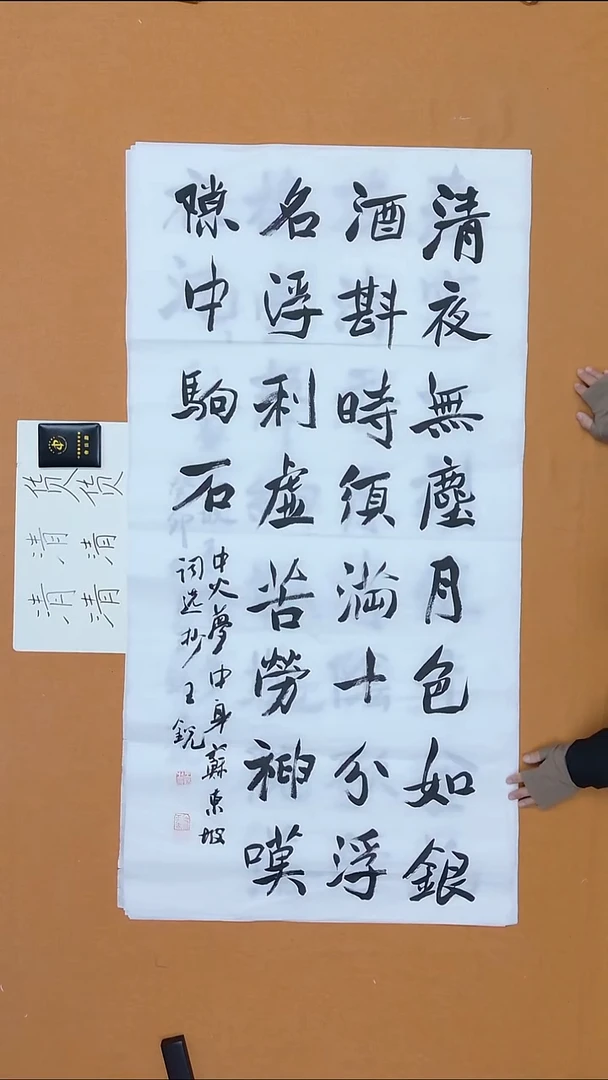 清夜無塵月色如銀
酒斟時須滿十分浮
名浮利虛苦勞神嘆
隙中駒石
中火夢中身蘇東坡
词选抄王銳
货货
清清
清清